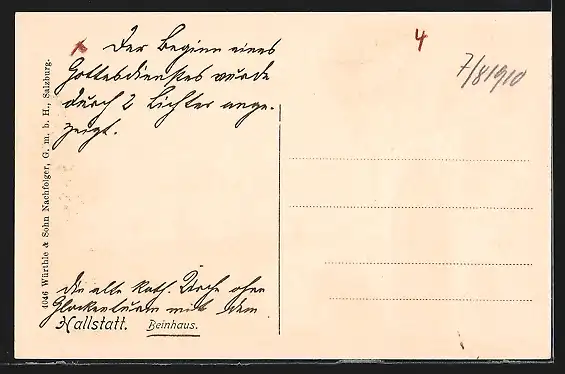 x Der Beginn eines
Gottesdienstes wurde
durch 2 Lichter ange-
zeigt.
4
7/8 1910
1046 Würthle & Sohn Nachfolger, G. m. b. H., Salzburg.
die alte kath. Kirche ohne
Glockenturm mit dem
Hallstatt. Beinhaus.